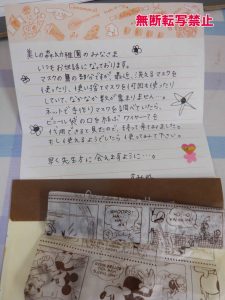 無断転写禁止
美しの森幼稚園のみなさま
いつもお世話になっております。
マスクの鼻の部分ですが、最近、洗えるマスクを
使ったり、使い捨てマスクも何回も使ったり
していて、なかなか数が集まりません…。
ネットで手作りマスクを調べていたら、
ビニール袋の口をしばるワイヤーでも
代用できると見たので、持って来てみました。
もし使えるようでしたら使ってみて下さい。
早く先生方に会えますように…。
WHOOPS